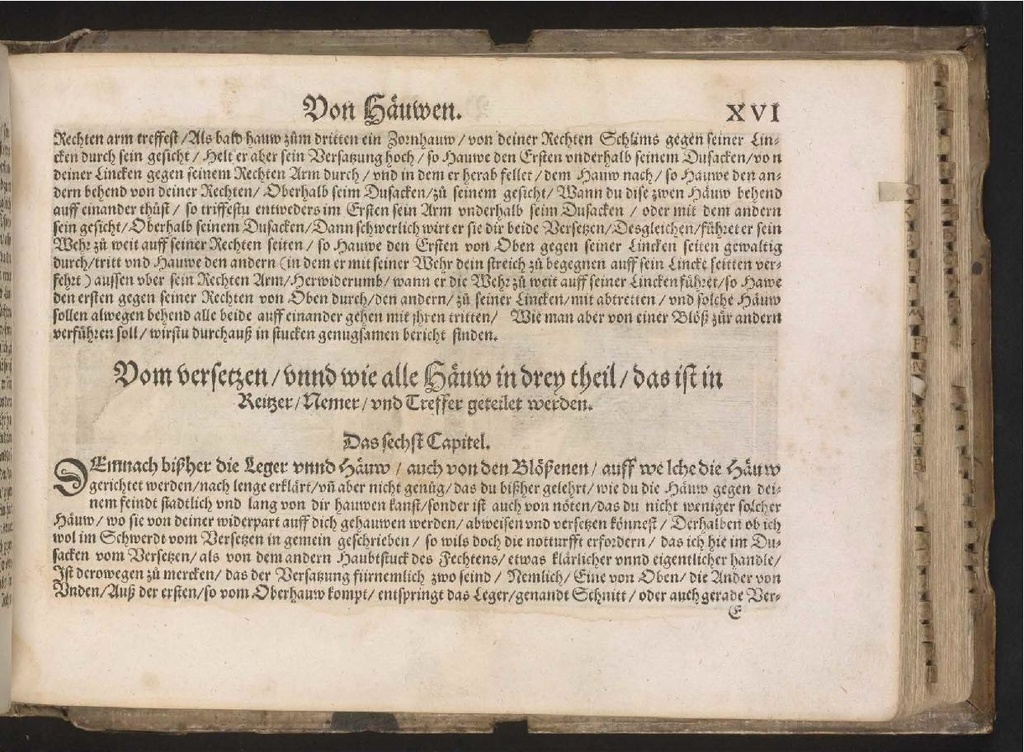 Von Häuwen. XVI
Rechten arm treffest / Als bald hauw zům dritten ein Zornhauw / von deiner Rechten Schlims gegen seiner Lin-
cken durch sein gesicht / Helt er aber sein Versatzung hoch / so Hauwe den Ersten vnderhalb seinem Dusacken / von
deiner Lincken gegen seinem Rechten Arm durch / vnd in dem er herab fellet / dem Hauw nach / so Hauwe den an-
dern behend von deiner Rechten / Oberhalb seim Dusacken / zů seinem gesicht / Wann du dise zwen Häuw behend
auff einander thůst / so triffestu entweders im Ersten sein Arm vnderhalb seim Dusacken / oder mit dem andern
sein gesicht / Oberhalb seinem Dusacken / Dann schwerlich wirt er sie dir beide Versetzen / Desgleichen / führet er sein
Wehr zů weit auff seiner Rechten seiten / so Hauwe den Ersten von Oben gegen seiner Lincken seiten gewaltig
durch / tritt vnd Hauwe den andern (in dem er mit seiner Wehr dein streich zů begegnen auff sein Lincke seitten ver-
fehrt) aussen vber sein Rechten Arm / Herwiderumb / wann er die Wehr zů weit auff seiner Lincken führet / so Hawe
den ersten gegen seiner Rechten von Oben durch / den andern / zů seiner Lincken / mit abtretten / vnd solche Häuw
sollen alwegen behend alle beide auff einander gehen mit jhren tritten / Wie man aber von einer Blöß zůr andern
verführen soll / wirstu durchauß in stucken genugsamen bericht finden.
Vom versetzen / vnnd wie alle Häuw in drey theil / das ist in
Reitzer / Nemer / vnd Treffer geteilet werden.
Das sechst Capitel.
DEmnach bißher die Leger vnnd Häuw / auch von den Blößenen / auff welche die Häuw
gerichtet werden / nach lenge erklärt / vñ aber nicht genůg / das du bißher gelehrt / wie du die Häuw gegen dei-
nem feindt stadtlich vnd lang von dir hauwen kanst / sonder ist auch von nöten / das du nicht weniger solcher
Häuw / wo sie von deiner widerpart auff dich gehauwen werden / abweisen vnd versetzen könnest / Derhalben ob ich
wol im Schwerdt vom Versetzen in gemein geschrieben / so wils doch die notturfft erfordern / das ich hie im Du-
sacken vom Versetzen / als von dem andern Haubtstuck des Fechtens / etwas klärlicher vnnd eigentlicher handle /
Ist derowegen zů mercken / das der Versatzung fürnemlich zwo seind / Nemlich / Eine von Oben / die Ander von
Vnden / Auß der ersten / so vom Oberhauw kompt / entspringt das Leger / genandt Schnitt / oder auch gerade Ver-
E